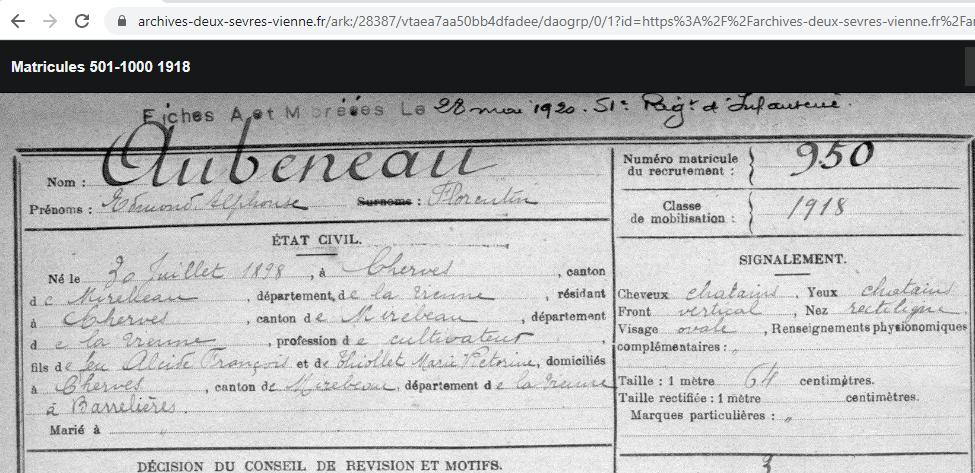 archives-deux-sevres-vienne.fr/ark:/28387/vtaea7aa50bb4dfadee/daogrp/0/1?id=https%3A%2F%2Farchives-deux-sevres-vienne.fr%2Far
Matricules 501-1000 1918
Fiches A et M Créées Le 28 mai 1920. 51e Régt d'Infanterie.
Nom : Aubeneau
Prénoms : Edmond Alphonse Surnoms : Florentin
Numéro matricule du recrutement : 950
Classe de mobilisation : 1918
ÉTAT CIVIL.
Né le 20 Juillet 1898, à Cherves, canton
de Mirebeau, département de la Vienne, résidant
à Cherves, canton de Mirebeau, département
de la Vienne, profession de cultivateur,
fils de feu Alcide François et de Thiollet Marie Victorine, domiciliés
à Cherves, canton de Mirebeau, département de la Vienne
à Barrelières.
Marié à
SIGNALEMENT.
Cheveux chatains, Yeux chatains
Front vertical, Nez rectiligne
Visage ovale, Renseignements physionomiques
complémentaires : "
Taille : 1 mètre 64 centimètres.
Taille rectifiée : 1 mètre centimètres.
Marques particulières : "
DÉCISION DU CONSEIL DE REVISION ET MOTIFS.
3